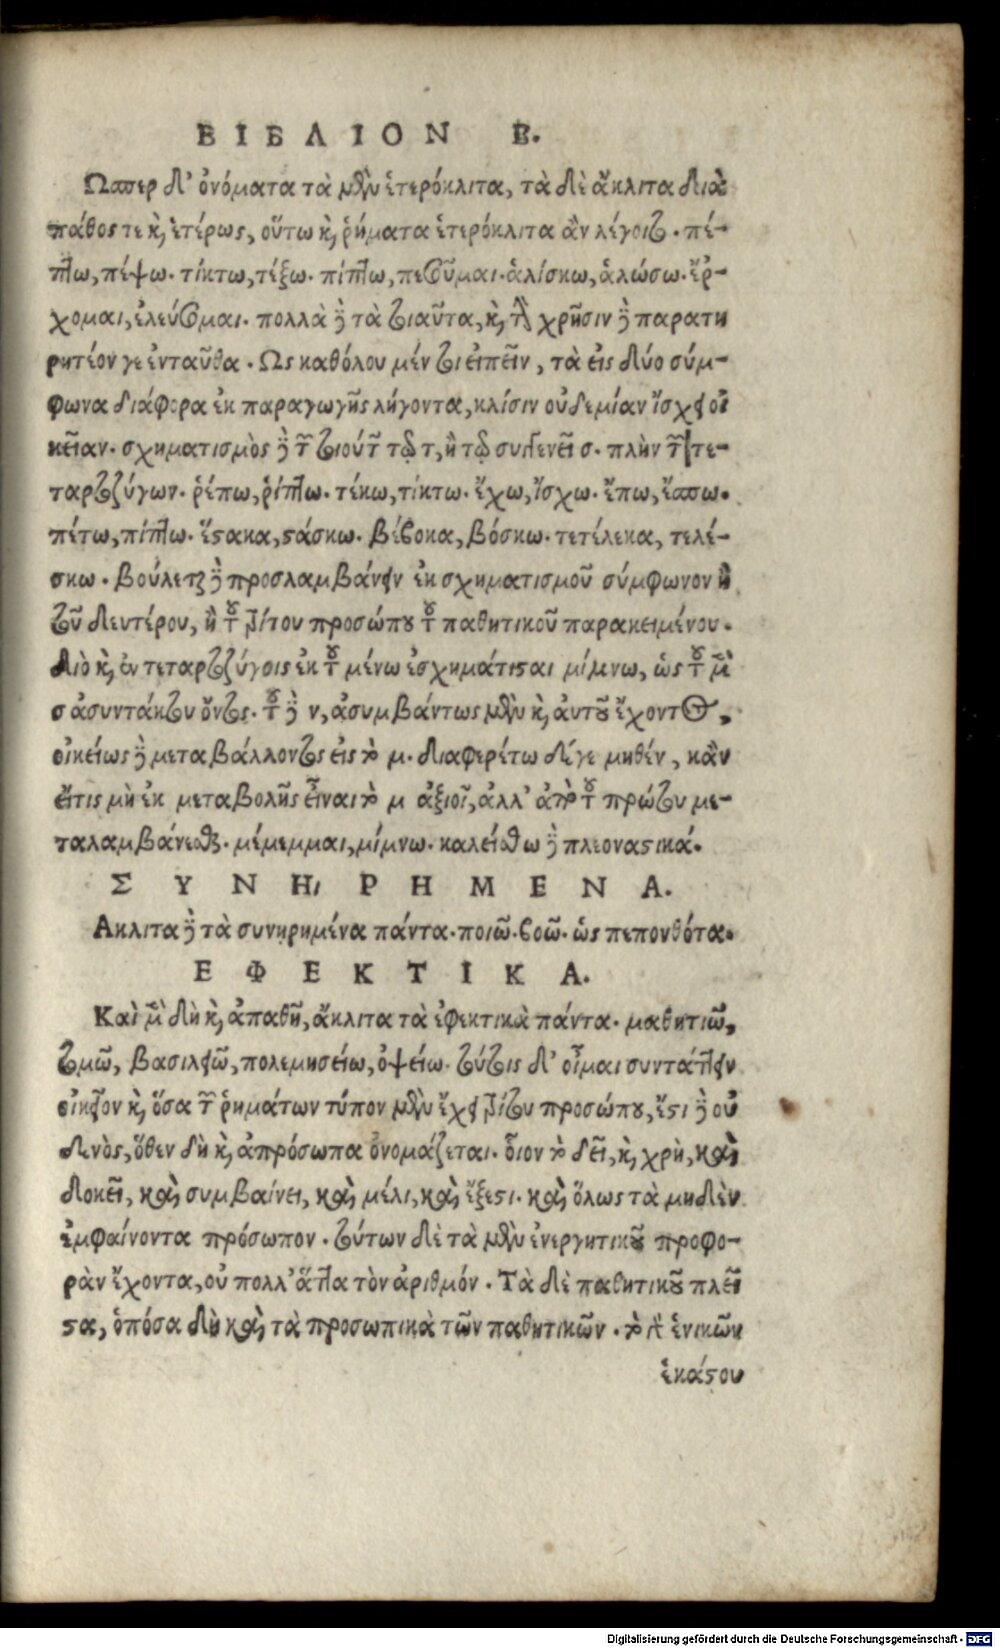 ΒΙΒΛΙΟΝ Β.
Ὥσπερ δ' ὀνόματα τὰ μὲν ἑτερόκλιτα, τὰ δὲ ἄκλιτα διὰ
πάθος τε καὶ ἑτέρως, οὕτω καὶ ῥήματα ἑτερόκλιτα ἂν λέγοις. πέ-
πτω, πέψω. τίκτω, τέξω. πίπτω, πεσοῦμαι. ἁλίσκω, ἁλώσω. ἔρ-
χομαι, ἐλεύσομαι. πολλὰ δὲ τὰ τοιαῦτα, καὶ τὴν χρῆσιν δὲ παρατη
ρητέον γε ἐνταῦθα. Ὡς καθόλου μέν τοι εἰπεῖν, τὰ εἰς δύο σύμ-
φωνα διάφορα ἐκ παραγωγῆς λήγοντα, κλίσιν οὐδεμίαν ἴσχει οἰ
κείαν. σχηματισμὸς δὲ τῶν τοιούτων τῷ τ, ἢ τῷ συγγενεῖ σ. πλὴν τῶν τε-
ταρτοζύγων. ῥέπω, ῥίπτω. τέκω, τίκτω. ἔχω, ἴσχω. ἔπω, ἔσπω.
πέτω, πίπτω. ἕστακα, στάσκω. βέβοκα, βόσκω. τετέλεκα, τελέ-
σκω. βούλεται δὲ προσλαμβάνειν ἐκ σχηματισμοῦ σύμφωνον ἢ
τοῦ δευτέρου, ἢ τοῦ τρίτου προσώπου τοῦ παθητικοῦ παρακειμένου.
διὸ καὶ ἐν τεταρτοζύγοις ἐκ τοῦ μένω ἐσχημάτισται μίμνω, ὡς τοῦ μὲν
σ ἀσυντάκτου ὄντος. τοῦ δὲ ν, ἀσυμβάντως μὲν καὶ αὐτοῦ ἔχοντος,
οἰκείως δὲ μεταβάλλοντος εἰς τὸ μ. διαφερέτω δέ γε μηθέν, κἂν
εἴτις μὴ ἐκ μεταβολῆς εἶναι τὸ μ ἀξιοῖ, ἀλλ' ἀπὸ τοῦ πρώτου με-
ταλαμβάνεσθαι. μέμεμμαι, μίμνω. καλείσθω δὲ πλεοναστικά.
ΣΥΝΗΡΗΜΕΝΑ.
Ακλιτα δὲ τὰ συνηρημένα πάντα. ποιῶ. βοῶ. ὡς πεπονθότα.
ΕΦΕΚΤΙΚΑ.
Καὶ μὲν δὴ καὶ ἀπαθῆ, ἄκλιτα τὰ ἐφεκτικὰ πάντα. μαθητιῶ,
τομῶ, βασιλειῶ, πολεμησείω, ὀψείω. τούτοις δ' οἶμαι συντάττειν
οἰκεῖον καὶ, ὅσα τῶν ῥημάτων τύπον μὲν ἔχει τρίτου προσώπου, ἔστι δὲ οὐ
δενὸς, ὅθεν δὴ καὶ ἀπρόσωπα ὀνομάζεται. οἷον τὸ δεῖ, καὶ χρὴ, καὶ
δοκεῖ, καὶ συμβαίνει, καὶ μέλι, καὶ ἔξεστι. καὶ ὅλως τὰ μηδὲν
ἐμφαίνοντα πρόσωπον. τούτων δὲ τὰ μὲν ἐνεργητικοῦ προφο-
ρὰν ἔχοντα, οὐ πολλ' ἄττα τὸν ἀριθμόν. Τὰ δὲ παθητικοῦ πλεῖ
στα, ὁπόσα δὴ καὶ τὰ προσωπικὰ τῶν παθητικῶν. τὸ ἑνικῶν
ἑκάστου
Digitalisierung gefördert durch die Deutsche Forschungsgemeinschaft - DFG